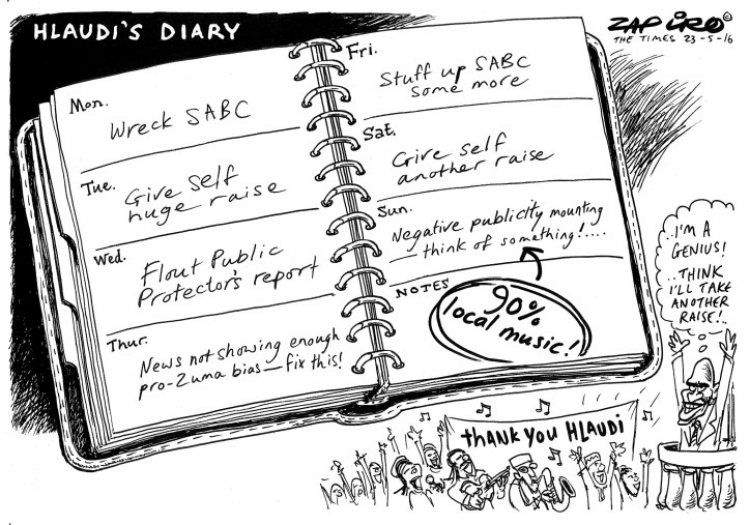 HLAUDI'S DIARY
ZAPIRO ©
THE TIMES 23-5-16
Mon.
Wreck SABC
Tue.
Give self
huge raise
Wed.
Flout Public
Protector's report
Thur.
News not showing enough
pro-Zuma bias — fix this!
Fri.
Stuff up SABC
some more
Sat.
Give self
another raise
Sun.
Negative publicity mounting
— think of something!....
NOTES
90%
local music!
..I'M A
GENIUS!
..THINK
I'LL TAKE
ANOTHER
RAISE!..
thANK YOU HLAUDi